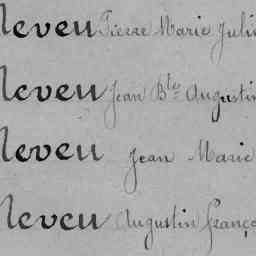 Neveu Pierre Marie Juli
Neveu Jean Bte Augustin
Neveu Jean Marie
Neveu Augustin Franço